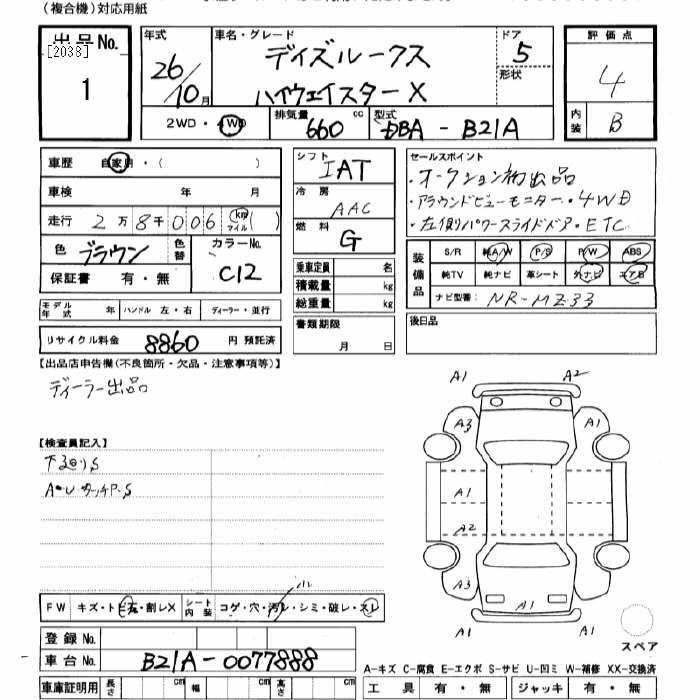 (複合機)対応用紙
出品No.
[2038]
1
年式
26/10月
車名・グレード
デイズルークス
ハイウェイスターX
ドア
5
形状
評価点
4
内装
B
2WD・4WD
排気量
660 cc
型式
DBA - B21A
車歴 自家用・( )
車検 年 月
走行 2万8千006 km マイル ( )
色 ブラウン 色替
カラーNo.
C12
保証書 有・無
モデル年式 年 ハンドル 左・右 ディーラー・並行
リサイクル料金 8860 円 預託済
シフト
IAT
冷房
AAC
燃料
G
乗車定員 名
積載量 kg
総重量 kg
書類期限
月 日
セールスポイント
・オークション初出品
・アラウンドビューモニター・4WD
・左側パワースライドドア・ETC
装備品
S/R 純A/W P/S P/W ABS
純TV 純ナビ 革シート 外ナビ エアB
ナビ型番: NR-MZ33
後日品
【出品店申告欄(不良箇所・欠品・注意事項等)】
ディーラー出品
【検査員記入】
下回りS
A・UタッチP・S
FW キズ・トビ石・割レX シート内装 コゲ・穴・汚レ・シミ・破レ・スレ
小
登録No.
車台No. B21A-0077888
車庫証明用 長さ cm 幅 cm 高さ cm
A1 A2
A3 A1
A1
A2
A3 A1
A1
A1 A1
スペア
A-キズ C-腐食 E-エクボ S-サビ U-凹ミ W-補修 XX-交換済
工具 有・無 ジャッキ 有・無